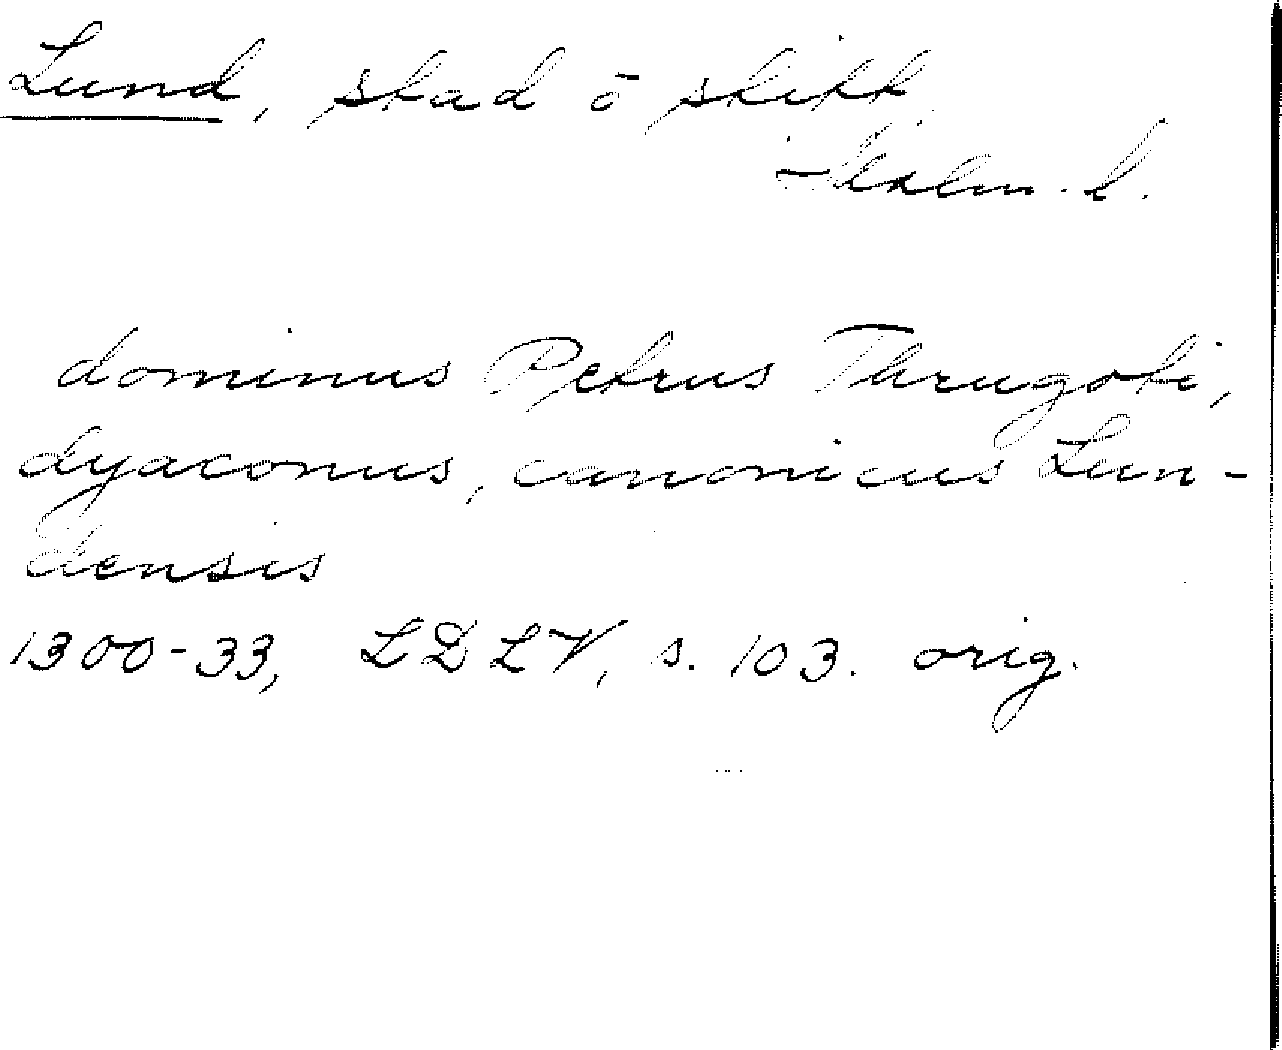 Lund, stad o stift
Malm. l.
dominus Petrus Thrugoti,
dyaconus, canonicus Lun-
densis
1300-33, LDLV, s. 103. orig.